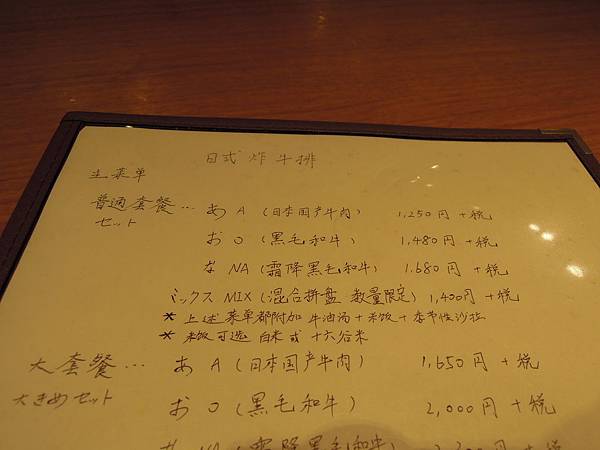 日式炸牛排
主菜单
普通套餐… あ A (日本国产牛肉) 1,250円+税
セット お O (黒毛和牛) 1,480円+税
な NA (霜降黒毛和牛) 1.680円+税
ミックス MIX (混合拼盘 数量限定) 1,400円+税
* 上述菜单都附加 牛油汤+米饭+季节性沙拉
* 米饭可选 白米 或 十六谷米
大套餐… あ A (日本国产牛肉) 1,650円+税
大きめセット お O (黒毛和牛) 2,000円+税
NA (霜降黒毛和牛)